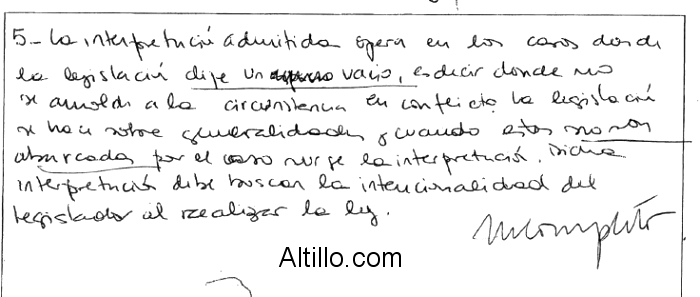 5- La interpretación admitida opera en los casos donde
la legislación dejé un vacío, es decir donde no
se amolde a la circunstancia en conflicto. La legislación
se hace sobre generalidades y cuando estas no son
abarcadas por el caso surge la interpretación. Dicha
interpretación debe buscar la intencionalidad del
legislador al realizar la ley.
Incompleto
Altillo.com